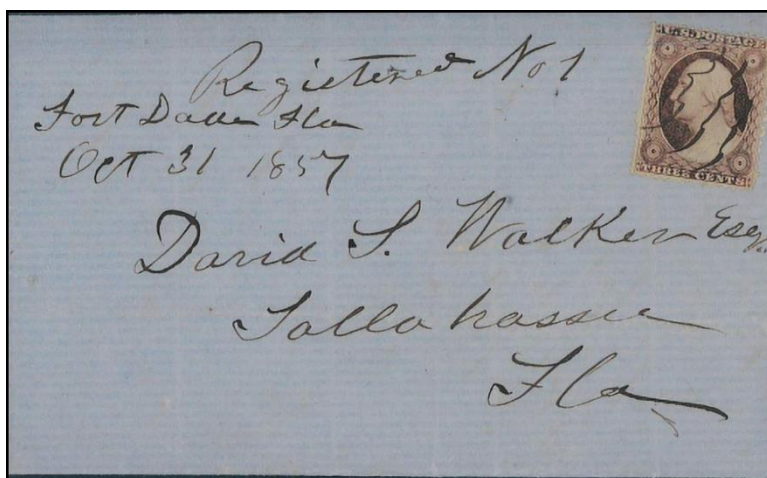 Registered No 1
Fort Dallas Fla
Oct 31 1857
U.S. POSTAGE
THREE CENTS
David S. Walker Esq.
Tallahassee
Fla